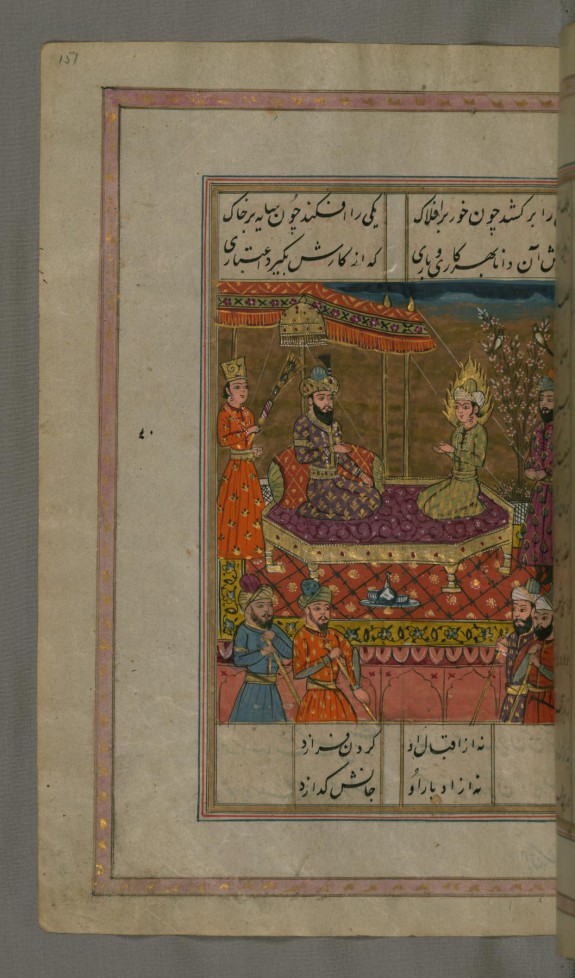 151
را برکشد چون خور بر افلاک
یکی را افکند چون سایه بر خاک
آن دانا بهر کاری و باری
که از کارش بگیرد اعتباری
۴۰
نه از اقبال او گردن فرازد
نه از ادبار او جانش گدازد